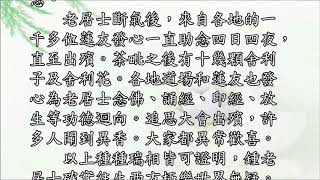 老居士斷氣後，來自各地的一
千多位蓮友發心一直助念四日四夜，
直至出殯。荼毗之後有十幾顆舍利
子及舍利花。各地道場和蓮友也發
心為老居士念佛、誦經、印經、放
生等功德迴向。追思大會出殯，許
多人聞到異香。大家都異常歡喜。
以上種種瑞相皆可證明，鍾老
居士確實往生西方極樂世界無疑。